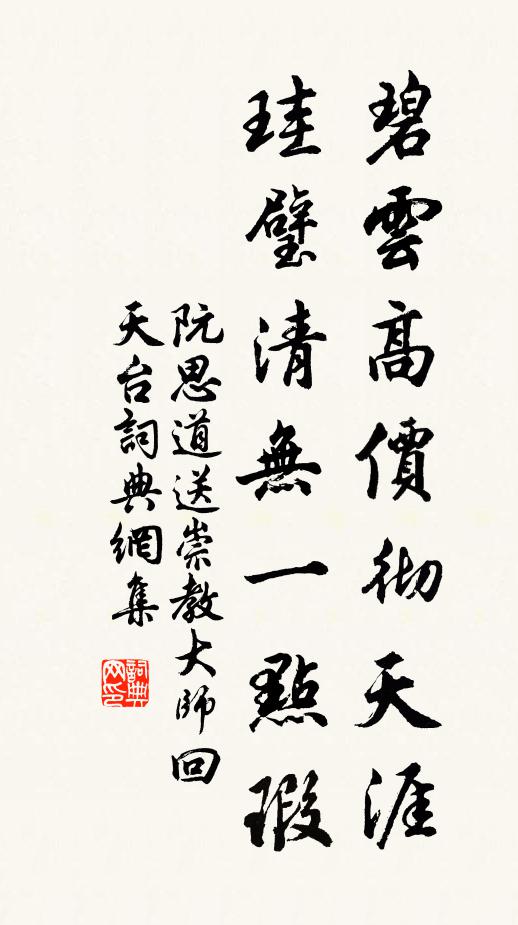 碧雲高價彻天涯
珪璧清無一點瑕
阮思道送崇教大師回
天台詞典網集
詞典
网印